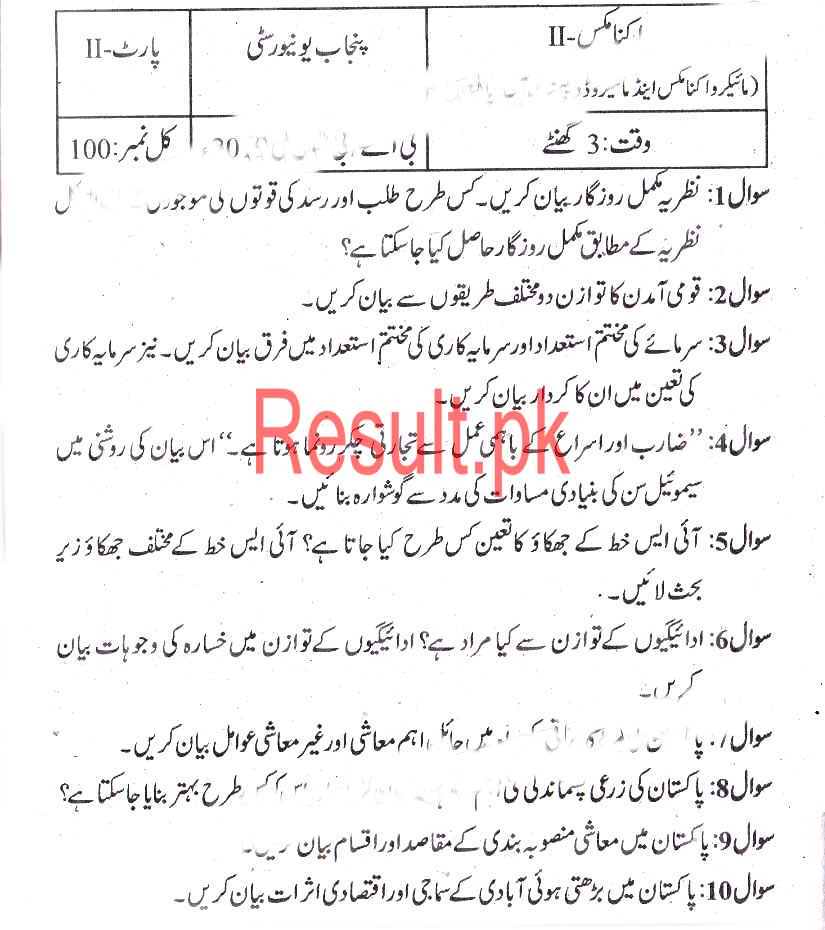 اکنامکس-II
پنجاب یونیورسٹی
پارٹ-II
(مائیکرواکنامکس اینڈ
وقت:3 گھنٹے
بی اے
20
کل نمبر:100
سوال1: نظریہ مکمل روزگار بیان کریں۔ کس طرح طلب اور رسد کی قوتوں کی
نظریہ کے مطابق مکمل روزگار حاصل کیا جاسکتا ہے؟
سوال2: قومی آمدن کا توازن دو مختلف طریقوں سے بیان کریں۔
سوال3: سرمائے کی مختتم استعداد اور سرمایہ کاری کی مختتم استعداد میں فرق بیان کریں۔ نیز سرمایہ کاری
کی تعین میں ان کا کردار بیان کریں۔
سوال4: ’’ضارب اور اسراع کے باہمی عمل سے تجارتی چکر رونما ہوتا ہے۔‘‘ اس بیان کی روشنی میں
سیموئیل سن کی بنیادی مساوات کی مدد سے گوشوارہ بنائیں۔
Result.pk
سوال5: آئی ایس خط کے جھکاؤ کا تعین کس طرح کیا جاتا ہے؟ آئی ایس خط کے مختلف جھکاؤ زیر
بحث لائیں۔
سوال6: ادائیگیوں کے توازن سے کیا مراد ہے؟ ادائیگیوں کے توازن میں خسارہ کی وجوہات بیان
کریں۔
سوال7: میں حائل اہم معاشی اور غیر معاشی عوامل بیان کریں۔
سوال8: پاکستان کی زرعی پسماندگی کی طرح بہتر بنایا جاسکتا ہے؟
سوال9: پاکستان میں معاشی منصوبہ بندی کے مقاصد اور اقسام بیان کریں۔
سوال10: پاکستان میں بڑھتی ہوئی آبادی کے سماجی اور اقتصادی اثرات بیان کریں۔